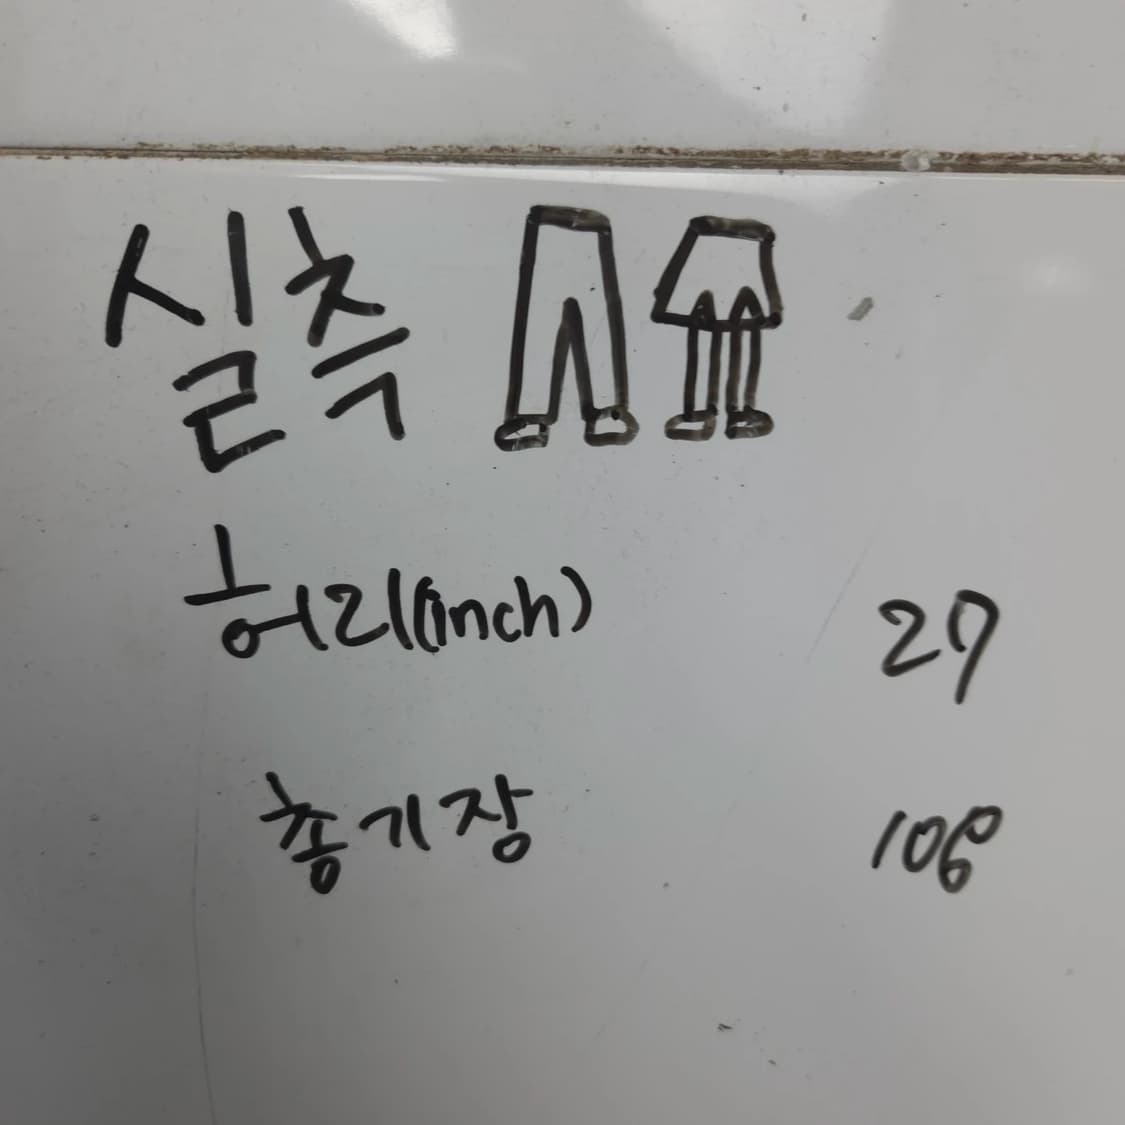 실측
허리(inch) 27
총기장 108